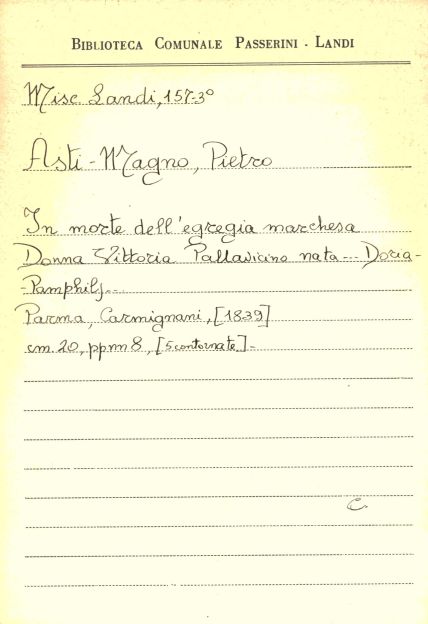 BIBLIOTECA COMUNALE PASSERINI - LANDI
Misc. Landi, 157-3°
Asti-Magno, Pietro
In morte dell'egregia marchesa
Donna Vittoria Pallavicino nata... Doria-
-Pamphilj...
Parma, Carmignani, [1839]
cm. 20, pp nn 8, [5 contornate].-
C.